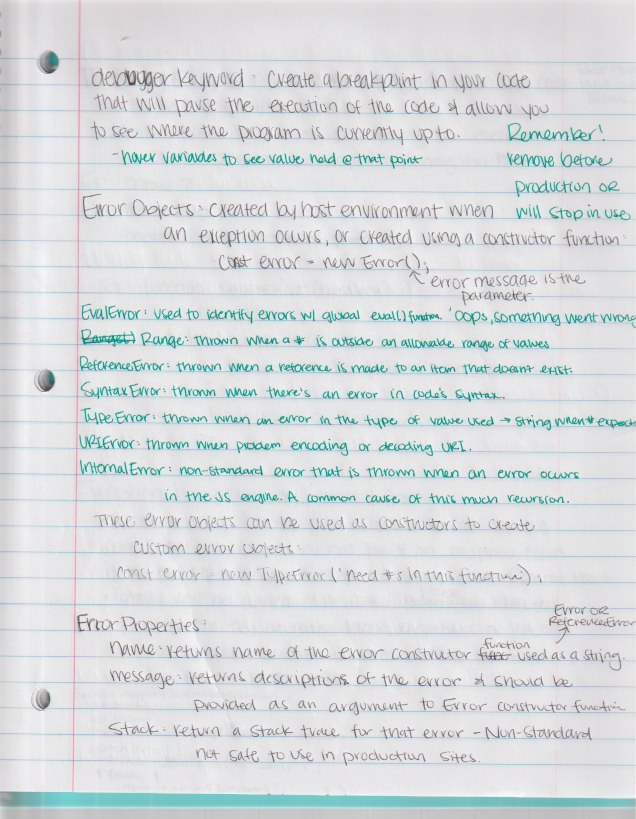 debugger keyword: Create a breakpoint in your code
that will pause the execution of the code & allow you
to see where the program is currently up to.
- hover variables to see value held @ that point
Remember!
remove before
production OR
will stop in use
Error Objects: Created by host environment when
an exception occurs, or created using a constructor function:
const error = new Error();
error message is the
parameter.
EvalError: used to identify errors w/ global eval() function. 'Oops, something went wrong
Range: thrown when a # is outside an allowable range of values
ReferenceError: thrown when a reference is made to an item that doesnt exist.
SyntaxError: thrown when there's an error in code's syntax.
TypeError: thrown when an error in the type of value used → string when # expecte
URIError: thrown when problem encoding or decoding URI.
InternalError: non-standard error that is thrown when an error occurs
in the JS engine. A common cause of this much recursion.
These error objects can be used as constructors to create
custom error objects:
const error = new TypeError('need #s in this function');
Error Properties:
Error OR
ReferenceError
name: returns name of the error constructor function used as a string.
message: returns descriptions of the error & should be
provided as an argument to Error constructor function
Stack: return a stack trace for that error - Non-Standard
not safe to use in production sites.